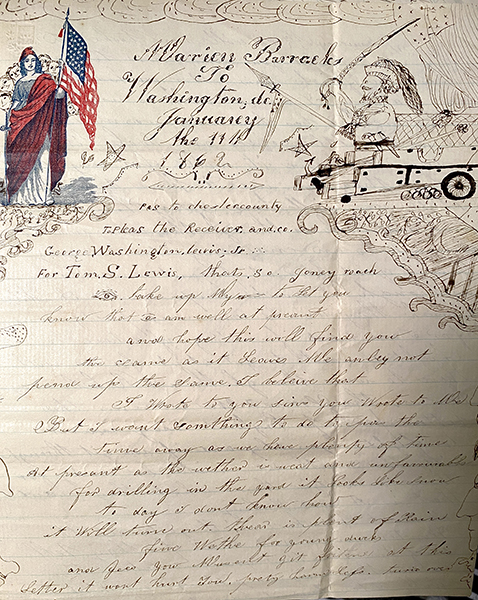 Marien Barracks
To
Washington, dc,
Januarey
the 11th
1862
Pas to chestercounty
the Receiver, and, co.
George Washington, Lewis, Jr
For Tom. S. Lewis, thats, so. Joney reach
take up My to let you
know that I am well at presant
and hope this will find you
the same as it Leaves Me
pend up the Same. I beleive that
I Wrote to you sinc you Wrote to Me
But I want somthing to do to pass the
time away as we have plenty of time
At present as the wether is weat and unfavourable
for drilling in the yard it looks like snow
to day I dont know how
it Will turn out thear is plent of Rain
Five Wethe for young ducks
and Jeco You Musent git at this
Letter it wont hurt You, prety harmless.